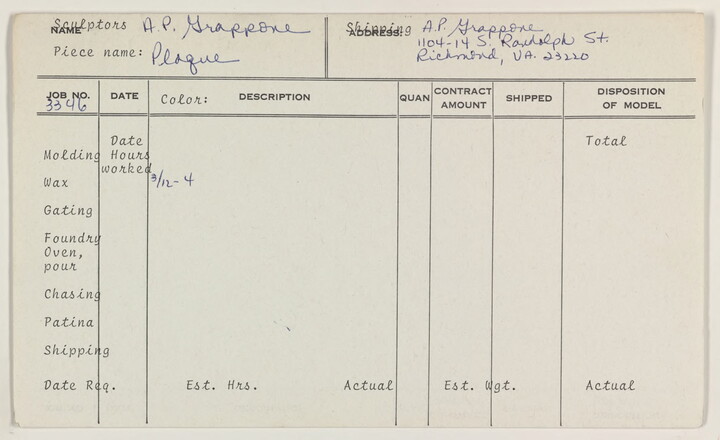 Sculptors NAME A.P. Grappone
Shipping ADDRESS: A.P. Grappone
1104-14 S. Randolph St.
Richmond, VA. 23220
Piece name: Plaque
JOB NO. DATE Color: DESCRIPTION QUAN CONTRACT AMOUNT SHIPPED DISPOSITION OF MODEL
3346
Date Total
Molding Hours
worked
Wax 3/12-4
Gating
Foundry
Oven,
pour
Chasing
Patina
Shipping
Date Req. Est. Hrs. Actual Est. Wgt. Actual